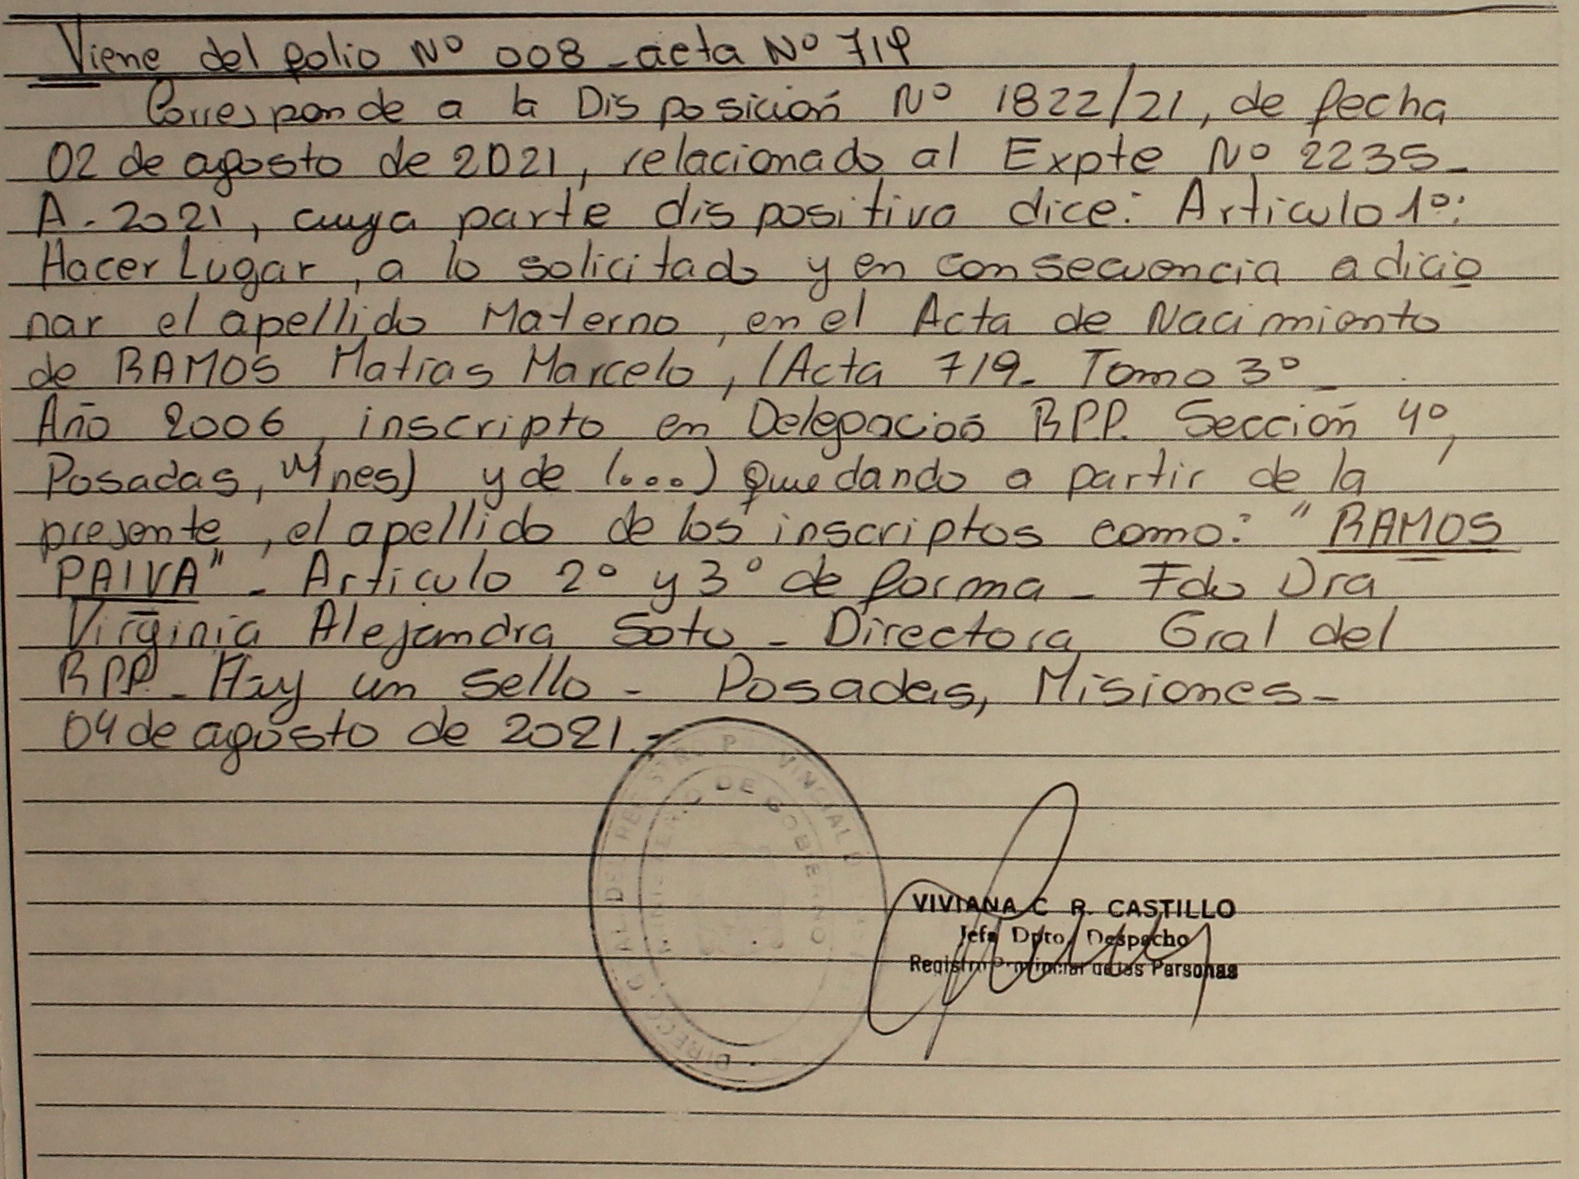 Viene del folio Nº 008 - acta Nº 719
Corresponde a la Disposición Nº 1822/21, de fecha
02 de agosto de 2021, relacionado al Expte Nº 2235-
A-2021, cuya parte dispositiva dice: Articulo 1º:
Hacer Lugar, a lo solicitado y en consecuencia adicio
nar el apellido Materno, en el Acta de Nacimiento
de RAMOS Matias Marcelo, (Acta 719- Tomo 3º-
Año 2006, inscripto en Delegación RPP. Sección 4º,
Posadas, Mnes) y de (...) Quedando a partir de la
presente, el apellido de los inscriptos como: "RAMOS
PAIVA" - Articulo 2º y 3º de forma - Fdo Dra
Virginia Alejandra Soto - Directora Gral del
RPP - Hay un sello - Posadas, Misiones -
04 de agosto de 2021.-
MINISTERIO DE GOBIERNO
VIVIANA C. R. CASTILLO
Jefa Dpto. Despacho
Registro Provincial de las Personas